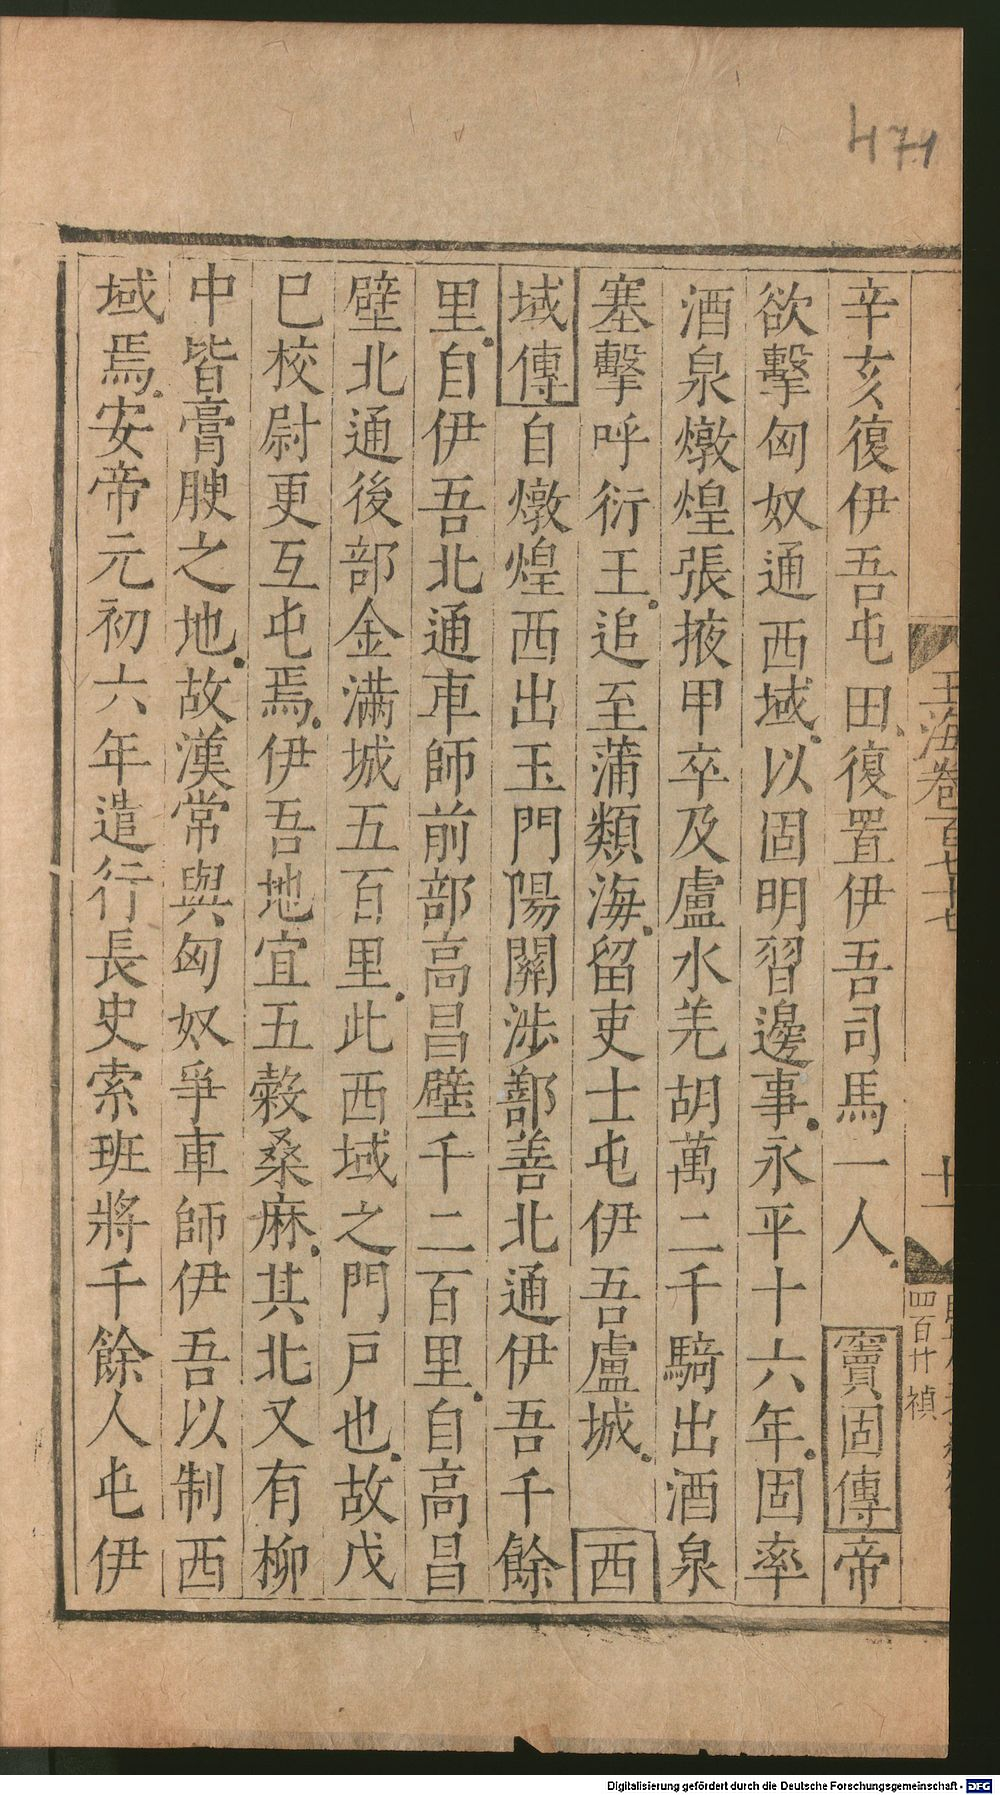 471
玉海卷百七十七
十一
四百廾 禎
辛亥復伊吾屯田、復置伊吾司馬一人。 竇固傳帝
欲擊匈奴通西域。以固明習邊事。永平十六年。固率
酒泉燉煌張掖甲卒及盧水羌胡萬二千騎出酒泉
塞擊呼衍王。追至蒲類海。留吏士屯伊吾盧城。 西
域傳自燉煌西出玉門陽關涉鄯善北通伊吾千餘
里。自伊吾北通車師前部高昌壁千二百里。自高昌
壁北通後部金滿城五百里。此西域之門戸也。故戊
巳校尉更互屯焉。伊吾地宜五穀桑麻。其北又有柳
中皆膏腴之地。故漢常與匈奴爭車師伊吾以制西
域焉。安帝元初六年遣行長史索班將千餘人屯伊
Digitalisierung gefördert durch die Deutsche Forschungsgemeinschaft - DFG